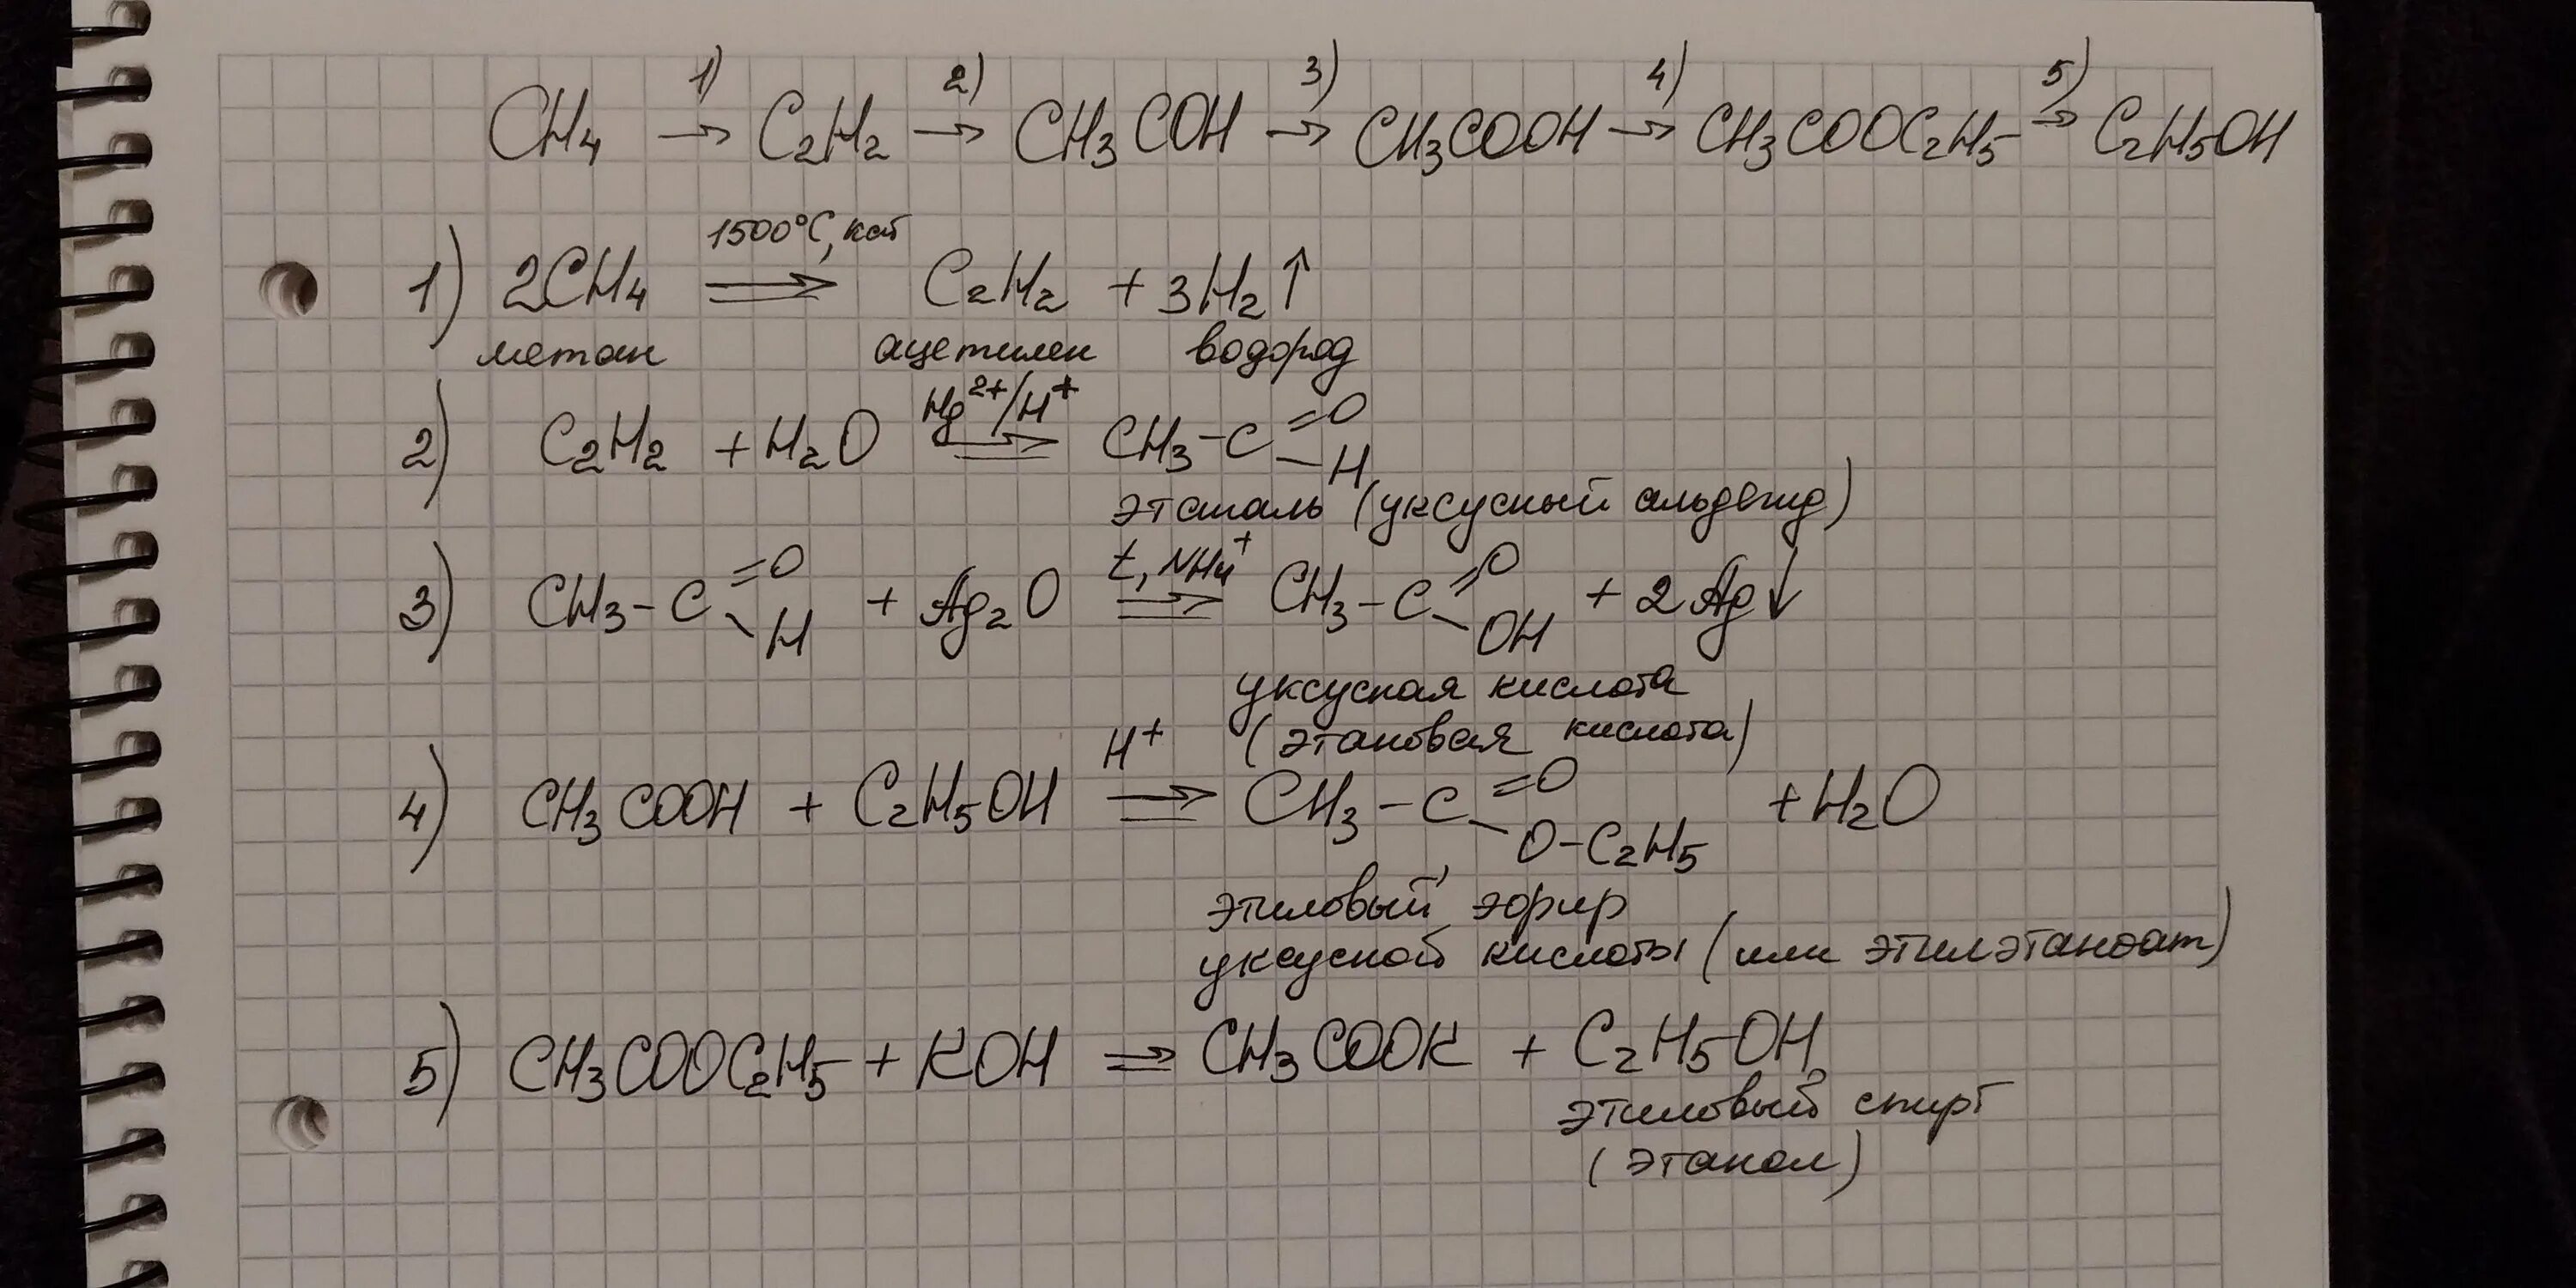 1) 2) 3) 4) 5)
CH₄ → C₂H₂ → CH₃COH → CH₃COOH → CH₃COOC₂H₅ → C₂H₅OH
1500°C, кат
1) 2CH₄ ⇒ C₂H₂ + 3H₂↑
метан ацетилен водород
Hg²⁺/H⁺
2) C₂H₂ + H₂O ⇒ CH₃-C=O
-H
этаналь (уксусный альдегид)
t, NH₄⁺
3) CH₃-C=O + Ag₂O ⇒ CH₃-C=O + 2Ag↓
-H -OH
уксусная кислота
(этановая кислота)
H⁺
4) CH₃COOH + C₂H₅OH ⇒ CH₃-C=O + H₂O
-O-C₂H₅
этиловый эфир
уксусной кислоты (или этилэтаноат)
5) CH₃COOC₂H₅ + KOH ⇒ CH₃COOK + C₂H₅OH
этиловый спирт
(этанол)